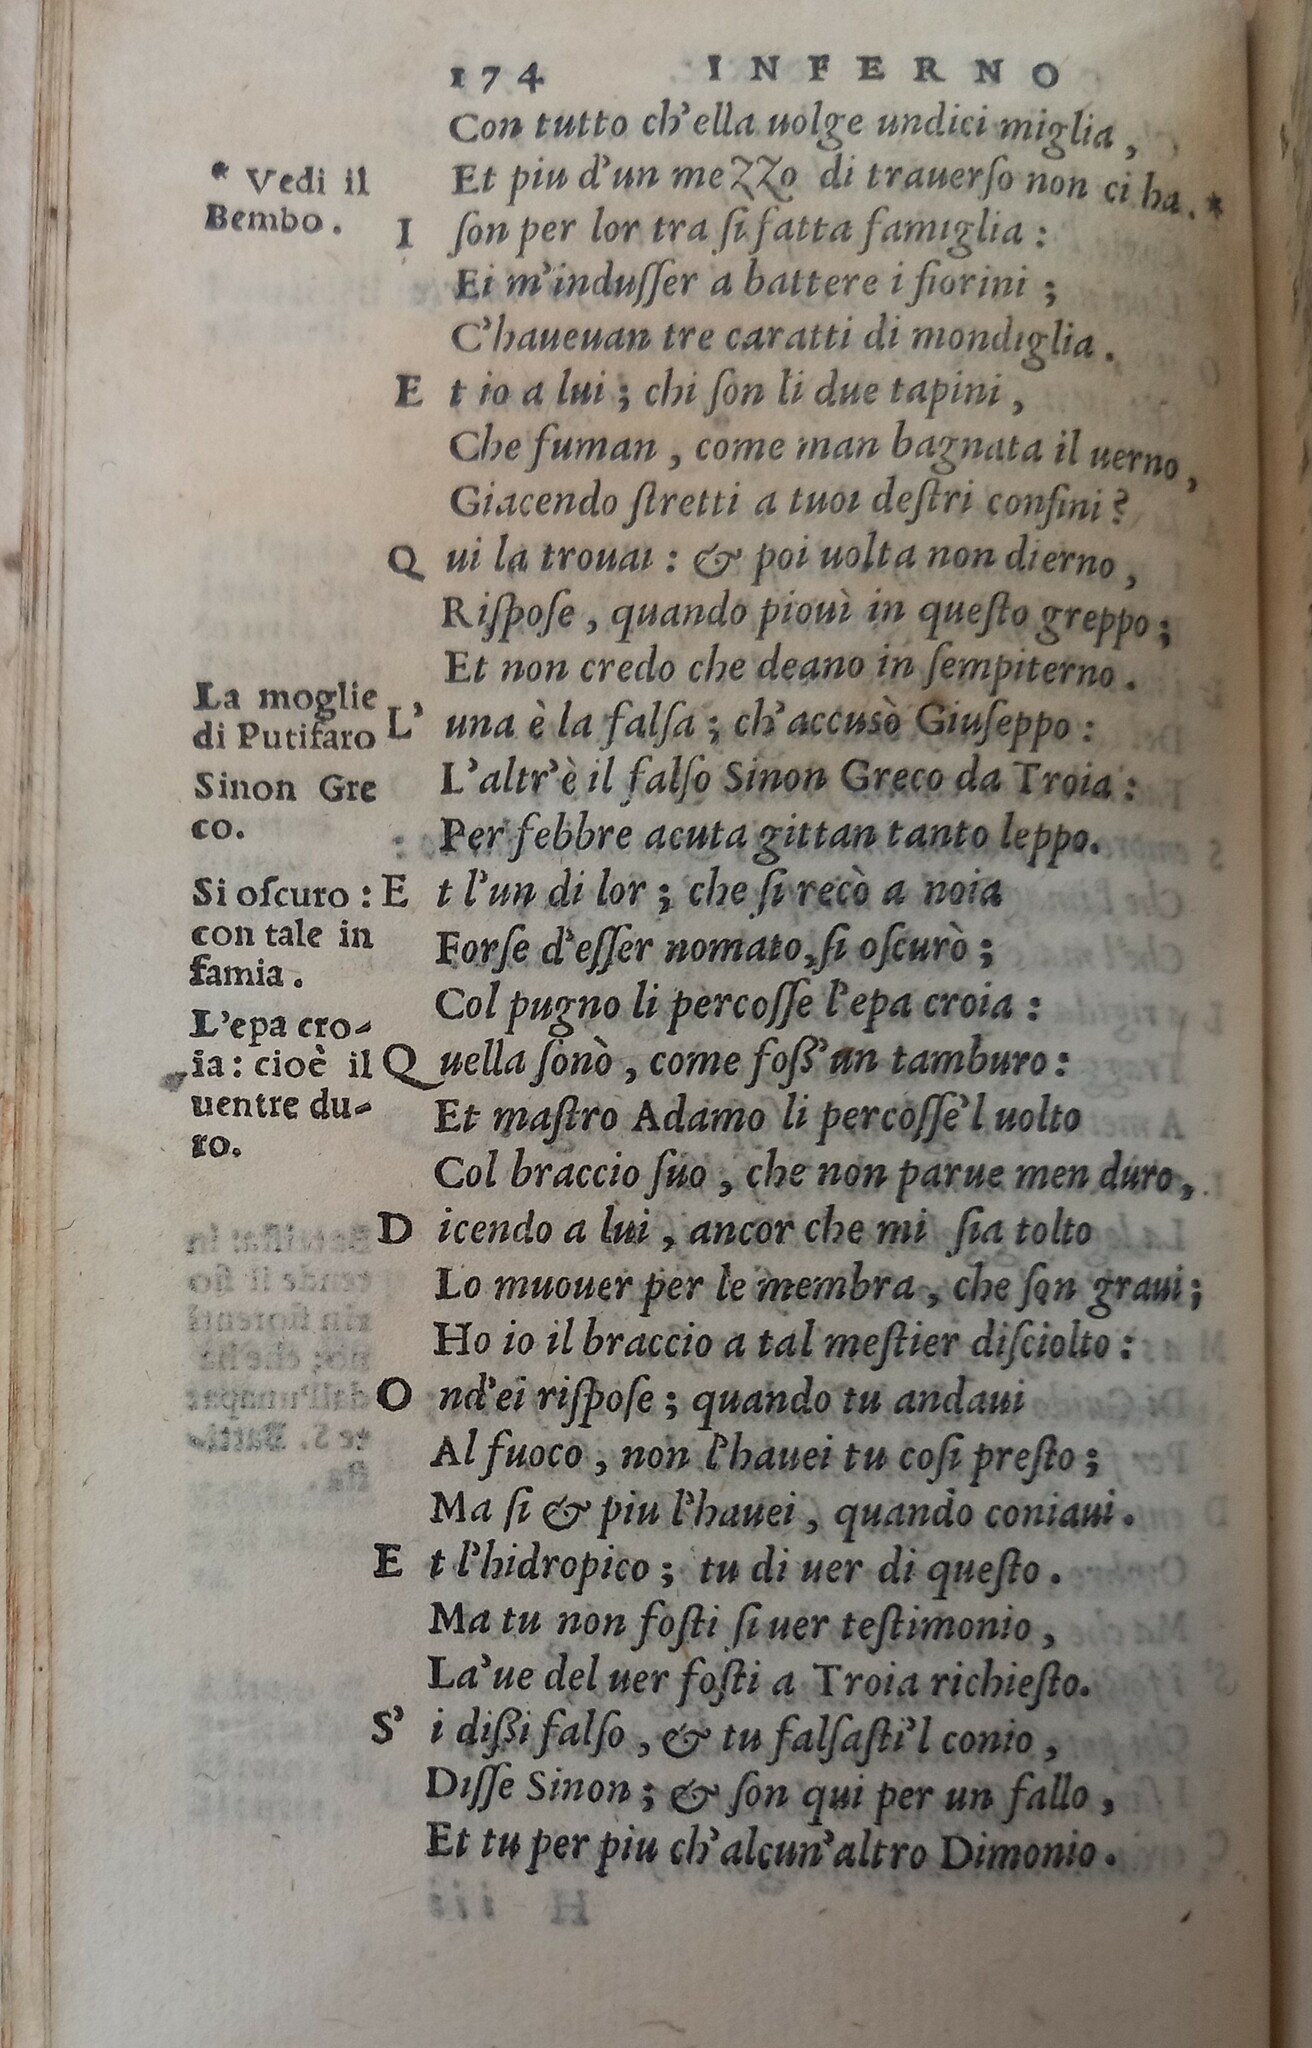 174 INFERNO
Con tutto ch'ella uolge undici miglia,
Et piu d'un meZZo di trauerſo non ci ha.*
* Vedi il
Bembo.
I ſon per lor tra ſi fatta famiglia:
Ei m'induſſer a battere i fiorini;
C'haueuan tre caratti di mondiglia.
E t io a lui; chi ſon li due tapini,
Che fuman, come man bagnata il uerno,
Giacendo ſtretti a tuoi deſtri confini?
Q ui la trouai: & poi uolta non dierno,
Riſpoſe, quando piouì in queſto greppo;
Et non credo che deano in ſempiterno.
La moglie
di Putifaro
L' una è la falſa; ch'accusò Giuſeppo:
L'altr'è il falſo Sinon Greco da Troia:
Sinon Gre
co.
Per febbre acuta gittan tanto leppo.
E t l'un di lor; che ſi recò a noia
Forſe d'eſſer nomato, ſi oſcurò;
Si oſcuro:
con tale in
famia.
Col pugno li percoſſe l'epa croia:
L'epa cro-
ia: cioè il
uentre du-
ro.
Q uella ſonò, come foß'un tamburo:
Et maſtro Adamo li percoſſe'l uolto
Col braccio ſuo, che non parue men duro,
D icendo a lui, ancor che mi ſia tolto
Lo muouer per le membra, che ſon graui;
Ho io il braccio a tal meſtier diſciolto:
O nd'ei riſpoſe; quando tu andaui
Al fuoco, non l'hauei tu coſi preſto;
Ma ſi & piu l'hauei, quando coniaui.
E t l'hidropico; tu di uer di queſto.
Ma tu non foſti ſi uer teſtimonio,
La'ue del uer foſti a Troia richieſto.
S' i dißi falſo, & tu falſaſti'l conio,
Diſſe Sinon; & ſon qui per un fallo,
Et tu per piu ch'alcun'altro Dimonio.